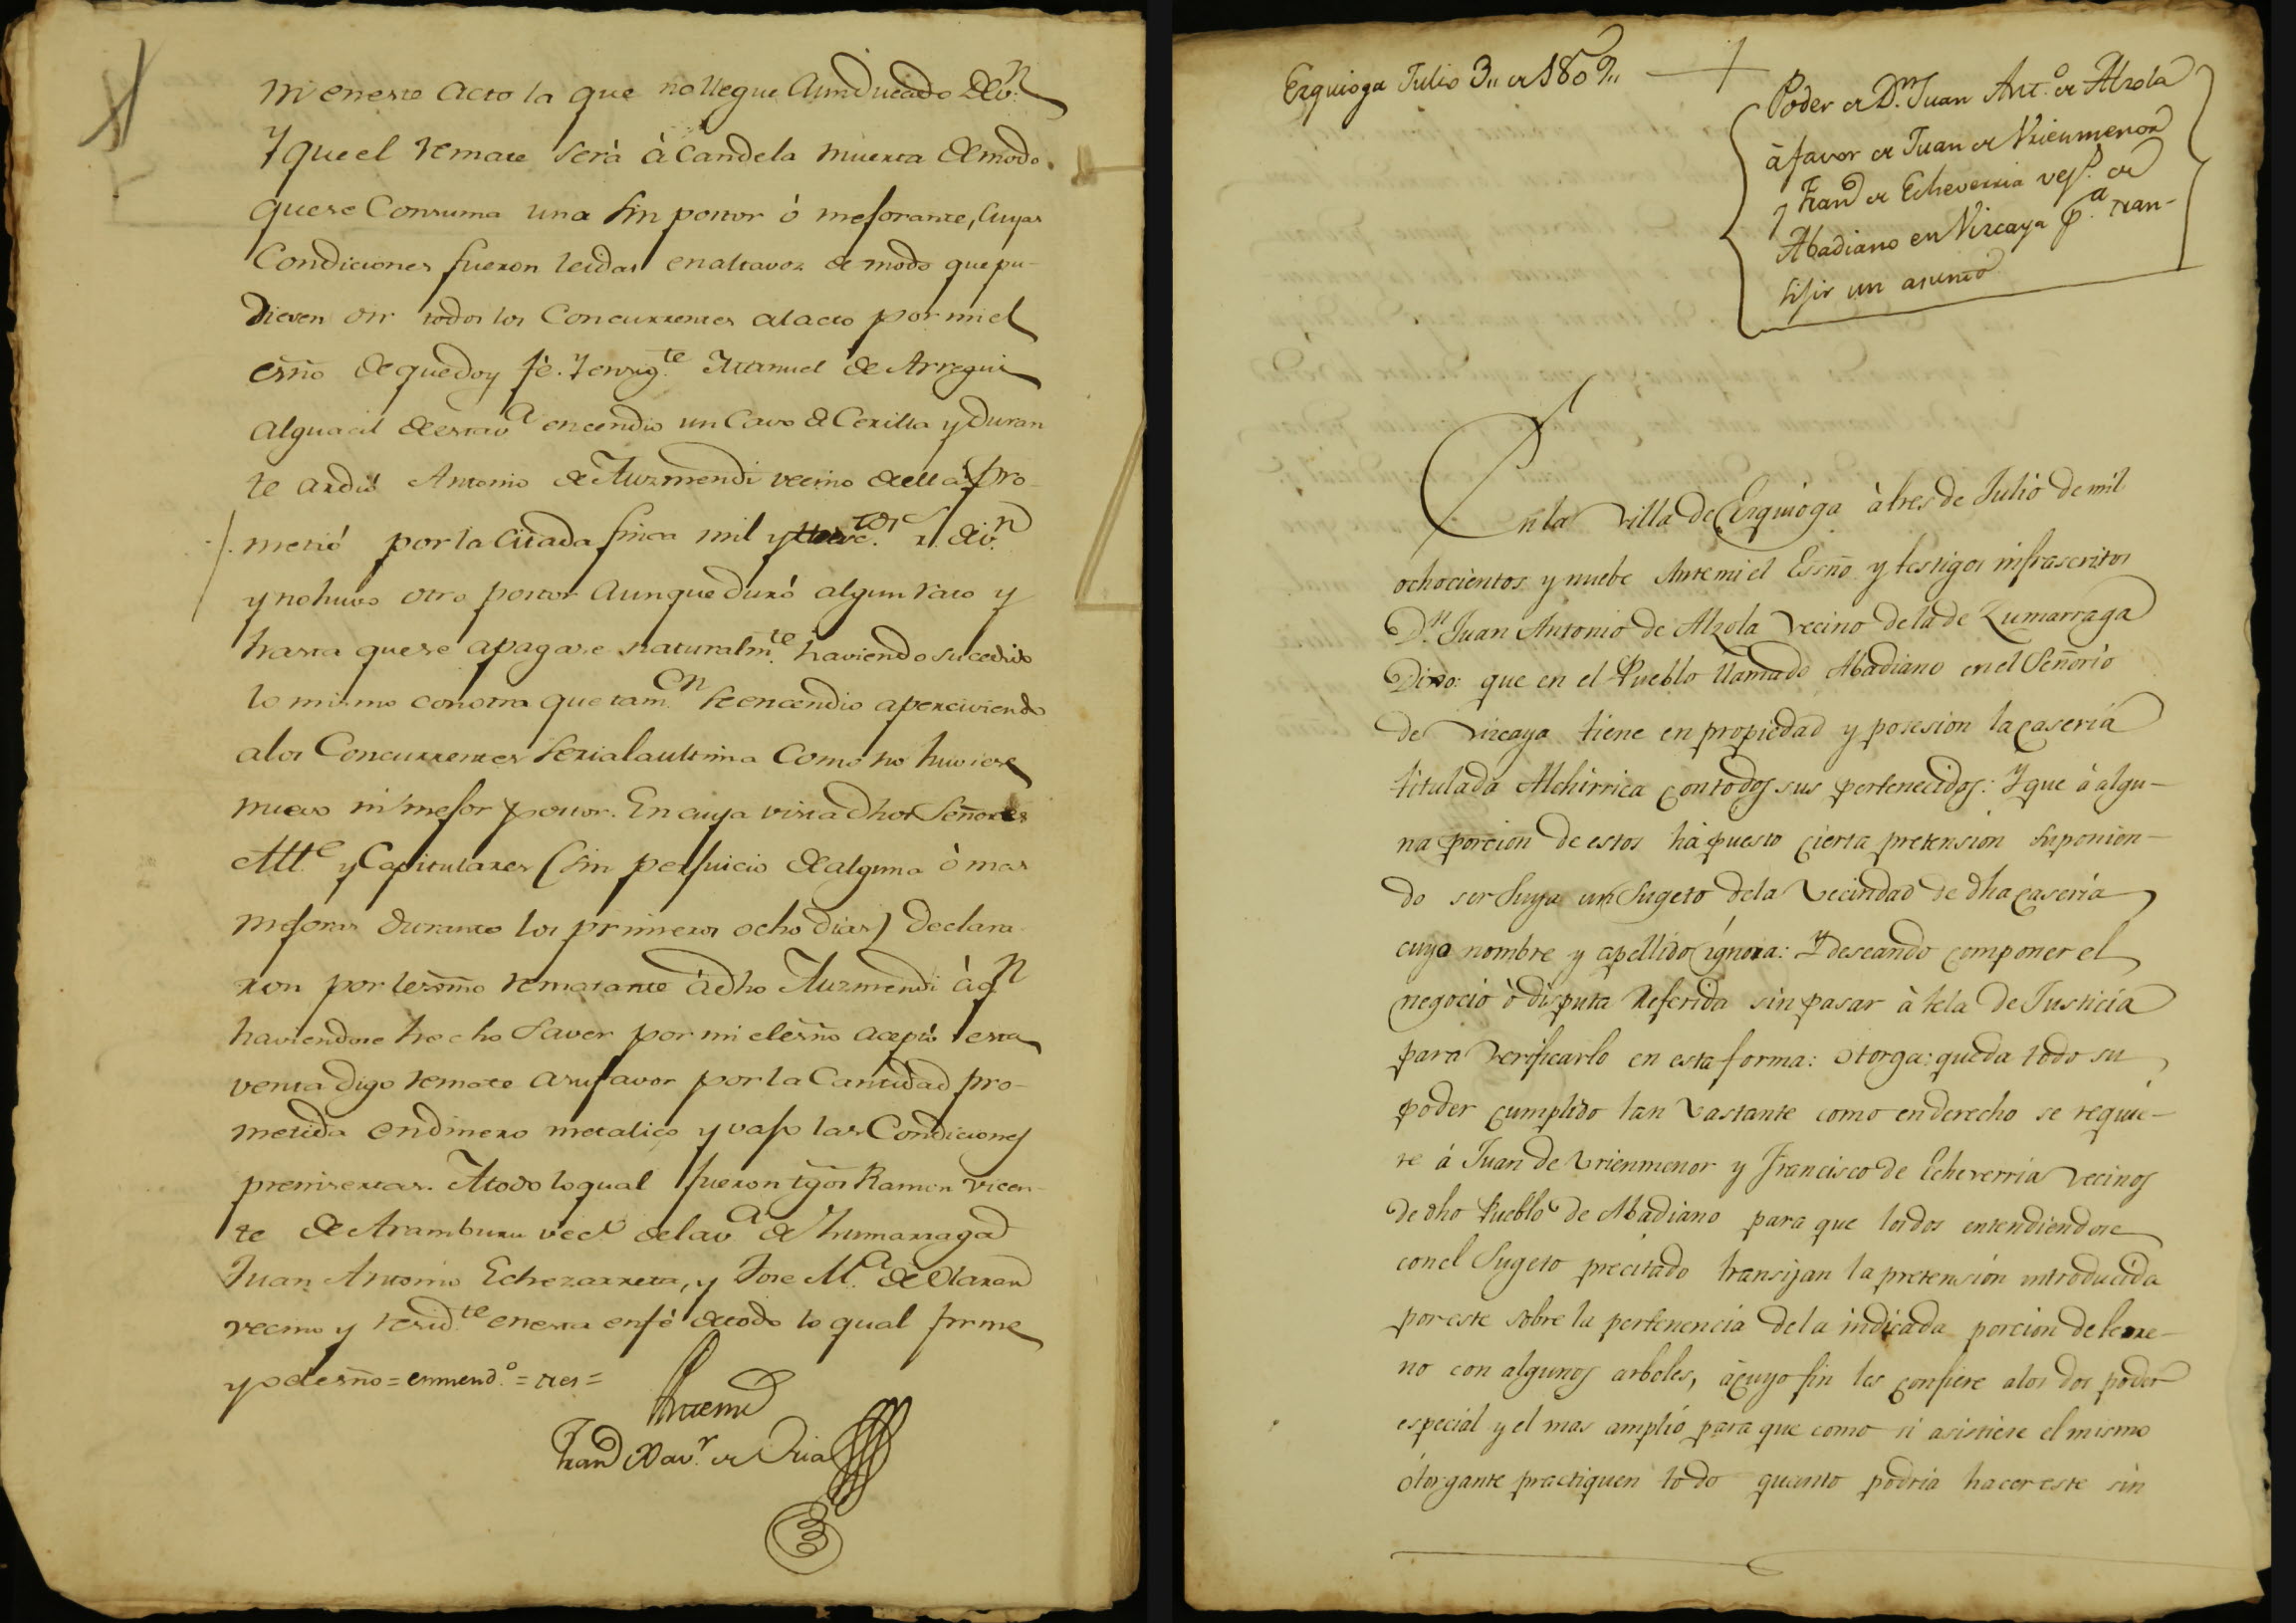 ni en este acto la que no llegue a un ducado de v.n
Y que el remate será à candela muerta de modo
que se consuma una sin postor ó mejorante, cuyas
Condiciones fueron leidas en alta voz de modo que pu-
dieren oir todos los Concurrentes al acto por mi el
esño de que doy fé. Y en sig.te Manuel de Arregui
alguacil de esta v.a encendio un Cavo de Cerilla y duran
te ardió Antonio de Auzmendi vecino de ella pro-
metió por la citada finca mil y tres r.s de v.n
y no huvo otro postor aunque duró algun rato y
hasta que se apagase naturalm.te haviendo sucedido
lo mismo con otra que tam.en se encendio aperciviendo
a los Concurrentes seria la ultima como no huviese
nuevo ni mejor postor. En cuya vista dhos Señores
Alt.e y Capitulares (sin perjuicio de alguna ò mas
mejoras durante los primeros ocho dias) declara-
ron por lexitimo rematante á dho Auzmendi à q.n
haviendose hecho saver por mi el esño aceptó esta
venta digo remate a su favor por la Cantidad pro-
metida en dinero metalico y vajo las Condiciones
preinsertas. A todo lo qual fueron tgos Ramon Vicen-
te de Aramburu vec.o de la v.a de Zumarraga
Juan Antonio Echezarreta, y Jose M.a de Olaran
vecino y resid.te en esta en fé de todo lo qual firmé
yo el esño = enmend.o = tres =
Ante mi
Fran.co Xav.r de Oria
Ezquioga Julio 3,, de 1809,,
Poder de D.n Juan Ant.o de Alzola
à favor de Juan de Vrienmenor
y Fran.co de Echeverria vez.s de
Abadiano en Vizcaya p.a tran-
sijir un asunto
En la Villa de Ezquioga à tres de Julio de mil
ochocientos y nuebe Ante mi el Essño y testigos infrascritos
D.n Juan Antonio de Alzola vecino de la de Zumarraga
Dixo: que en el Pueblo llamado Abadiano en el Señorío
de Vizcaya tiene en propiedad y posesion la Casería
titulada Alchirrica con todos sus pertenecidos: Y que à algu-
na porcion de estos há puesto cierta pretension suponien-
do ser suya un Sugeto de la Vecindad de dha Casería
cuyo nombre y apellido ignora: Y deseando componer el
negocio ò disputa referida sin pasar à tela de Justicia
para verificarlo en esta forma: otorga: que da todo su
poder cumplido tan vastante como en derecho se requie-
re á Juan de Vrienmenor y Francisco de Echeverria vecinos
de dho Pueblo de Abadiano para que los dos entendiendose
con el Sugeto precitado transijan la pretensión introducida
por este sobre la pertenencia de la indicada porcion de terre-
no con algunos arboles, à cuyo fin les confiere a los dos poder
especial y el mas amplio para que como si asistiere el mismo
otorgante practiquen todo quanto podria hacer este sin